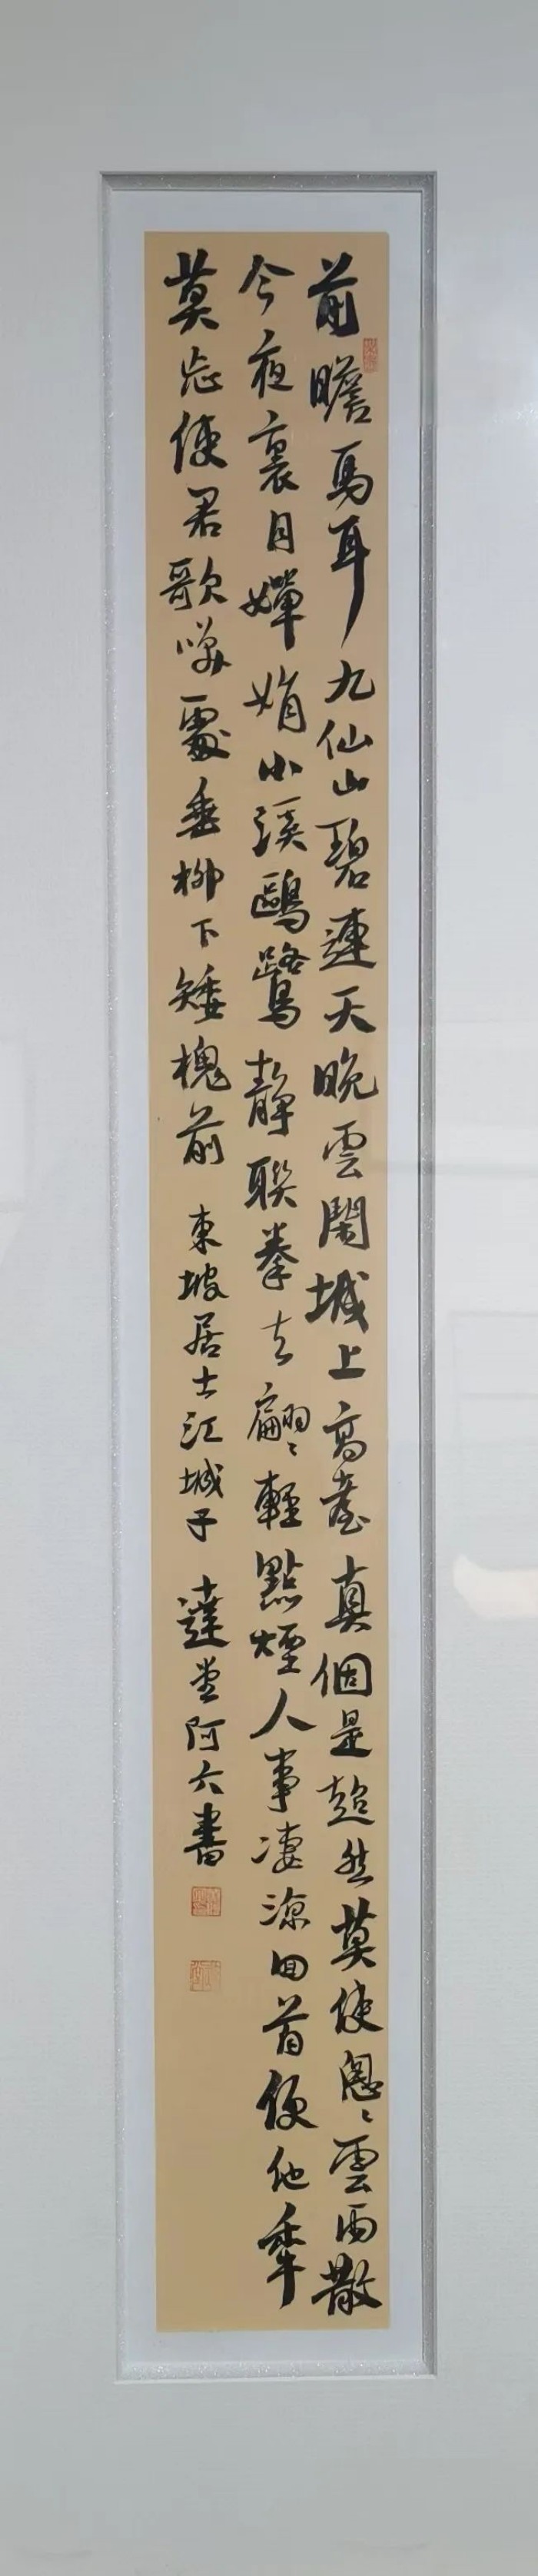 前瞻馬耳九仙山碧連天晚雲閒城上高臺真個是超然莫使匆〻雲雨散
今夜裏月嬋娟小溪鷗鷺靜聯拳去翩〻輕點煙人事淒涼回首便他年
莫忘使君歌笑處垂柳下矮槐前 東坡居士江城子 達堂阿六書